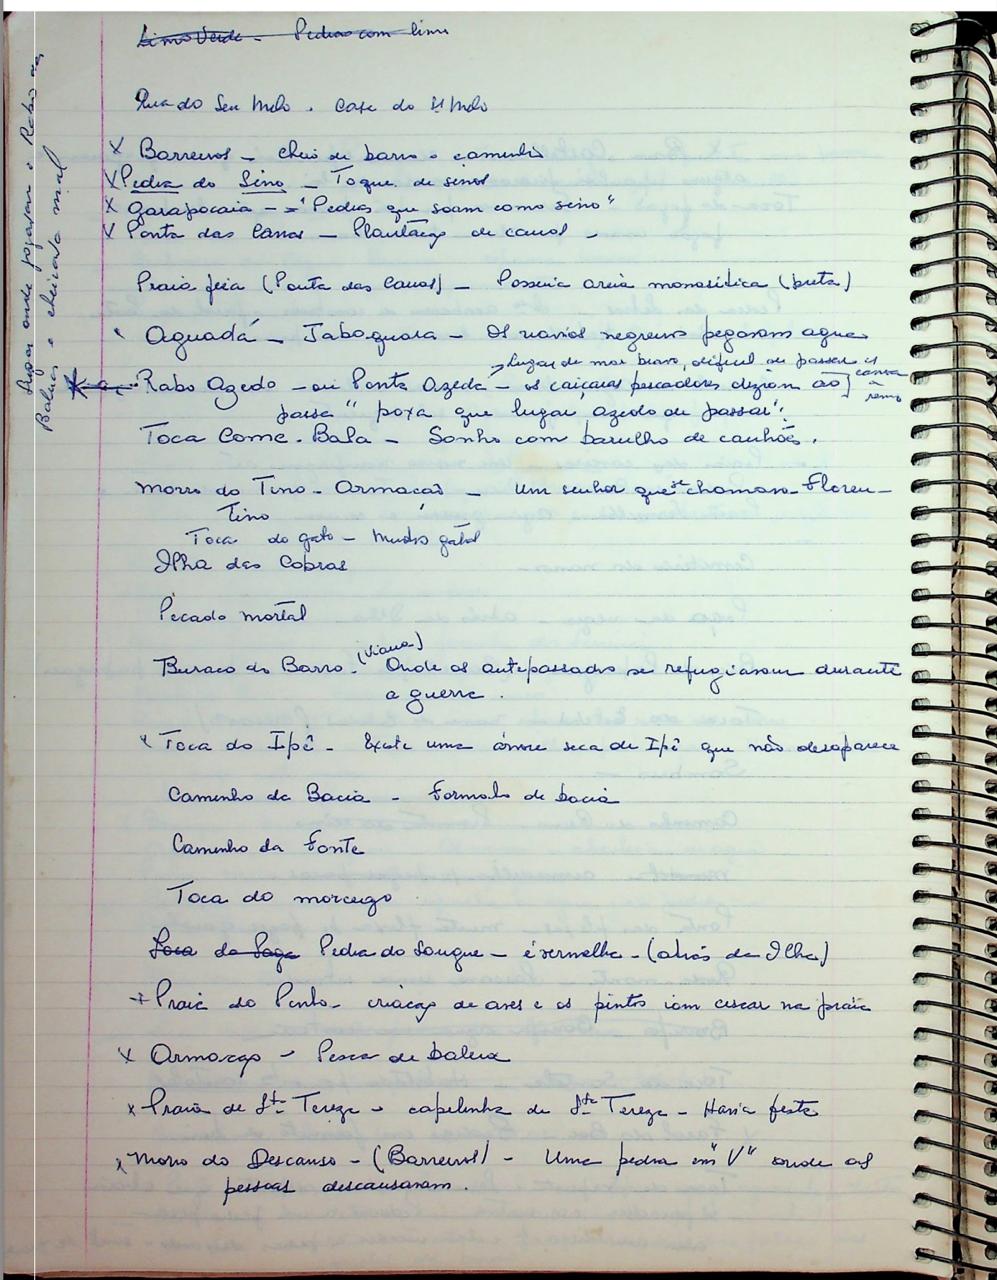 Limo Verde - Pedras com limo
Rua do Seu Melo. Casa do Sr Melo
X Barreiros - cheio de barro o caminho
X Pedra do Sino - Toque de sinos
X Garapocaia - = "Pedras que soam como sino"
X Ponta das Canas - Plantação de canas -
Praia feia (Ponta das Canas) - Possuia areia monasítica (preta)
Aguadá - Jabaquara - Os navios negreiros pegavam agua
Lugar de mar bravo, dificil de passar c/ canoa a remo
Rabo Azedo - ou Ponta Azeda - os caiçaras pescadores diziam ao
passar "poxa que lugar azedo de passar".
Lugar onde jogavam o Rabo das
Baleias e cheirava mal
Toca Come-Bala - Sonho com barulho de canhões.
Morro do Tino - Armação - Um senhor que se chamava Floren-
Tino
Toca do gato - muitos gatos
Ilha das Cobras
Pecado mortal
Buraco do Barro - (Viana) Onde os antepassados se refugiavam durante
a guerra.
x Toca do Ipê - Existe uma árvore seca de Ipê que não desaparece
Caminho da Bacia - Formato de bacia
Caminho da Fonte
Toca do morcego
Toca da Pedra do Sangue - é vermelha - (atrás da Ilha)
+ Praia do Pinto - criação de aves e os pintos iam ciscar na praia
X Armação - Pesca de baleia
x Praia de Sta Tereza - capelinha de Sta Tereza - Havia festa
x Morro do Descanso - (Barreiros) - Uma pedra em "V" onde as
pessoas descansavam.